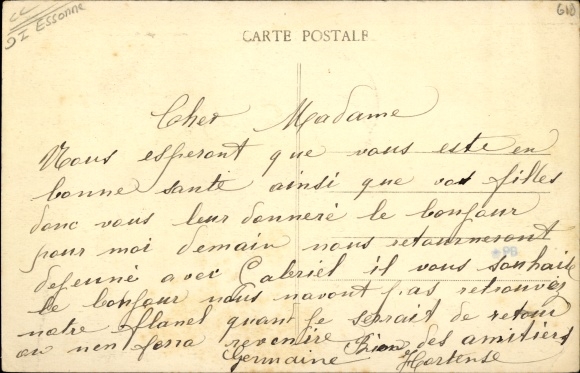 91 Essonne
610
CARTE POSTALE
Cher Madame
Nous esperont que vous este en
bonne santé ainsi que vos filles
donc vous leur donneré le bonjour
pour moi demain nous retourneront
dejeuné avec Gabriel il vous souhait
le bonjour nous navont pas retrouvez
notre flanel quant je serrait de retour
on nen ferra revenire Bien des amitiers
Germaine Hortense